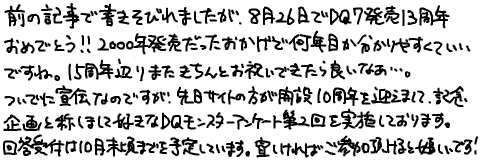 前の記事で書きそびれましたが、8月26日でDQ7発売13周年
おめでとう!!2000年発売だったおかげで何年目か分かりやすくていい
ですね。15周年辺りまたきちんとお祝いできたら良いなあ…。
ついでに宣伝なのですが、先日サイトの方が開設10周年を迎えまして、記念
企画と称しまして好きなDQモンスターアンケート第2回を実施しております。
回答受付は10月末頃までを予定しています。宜しければご参加頂けると嬉しいです!